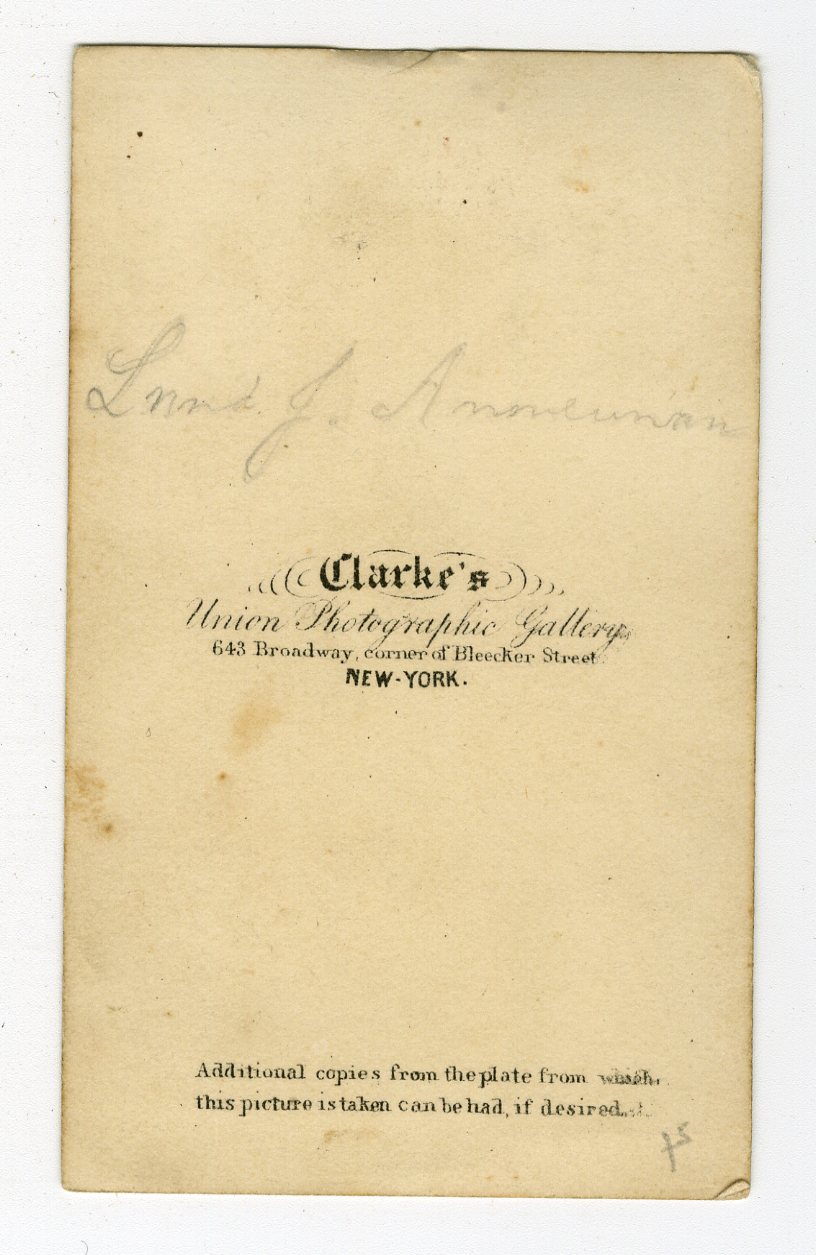 J.
Clarke's
Union Photographic Gallery,
643 Broadway, corner of Bleecker Street
NEW-YORK.
Additional copies from the plate from which
this picture is taken can be had, if desired.